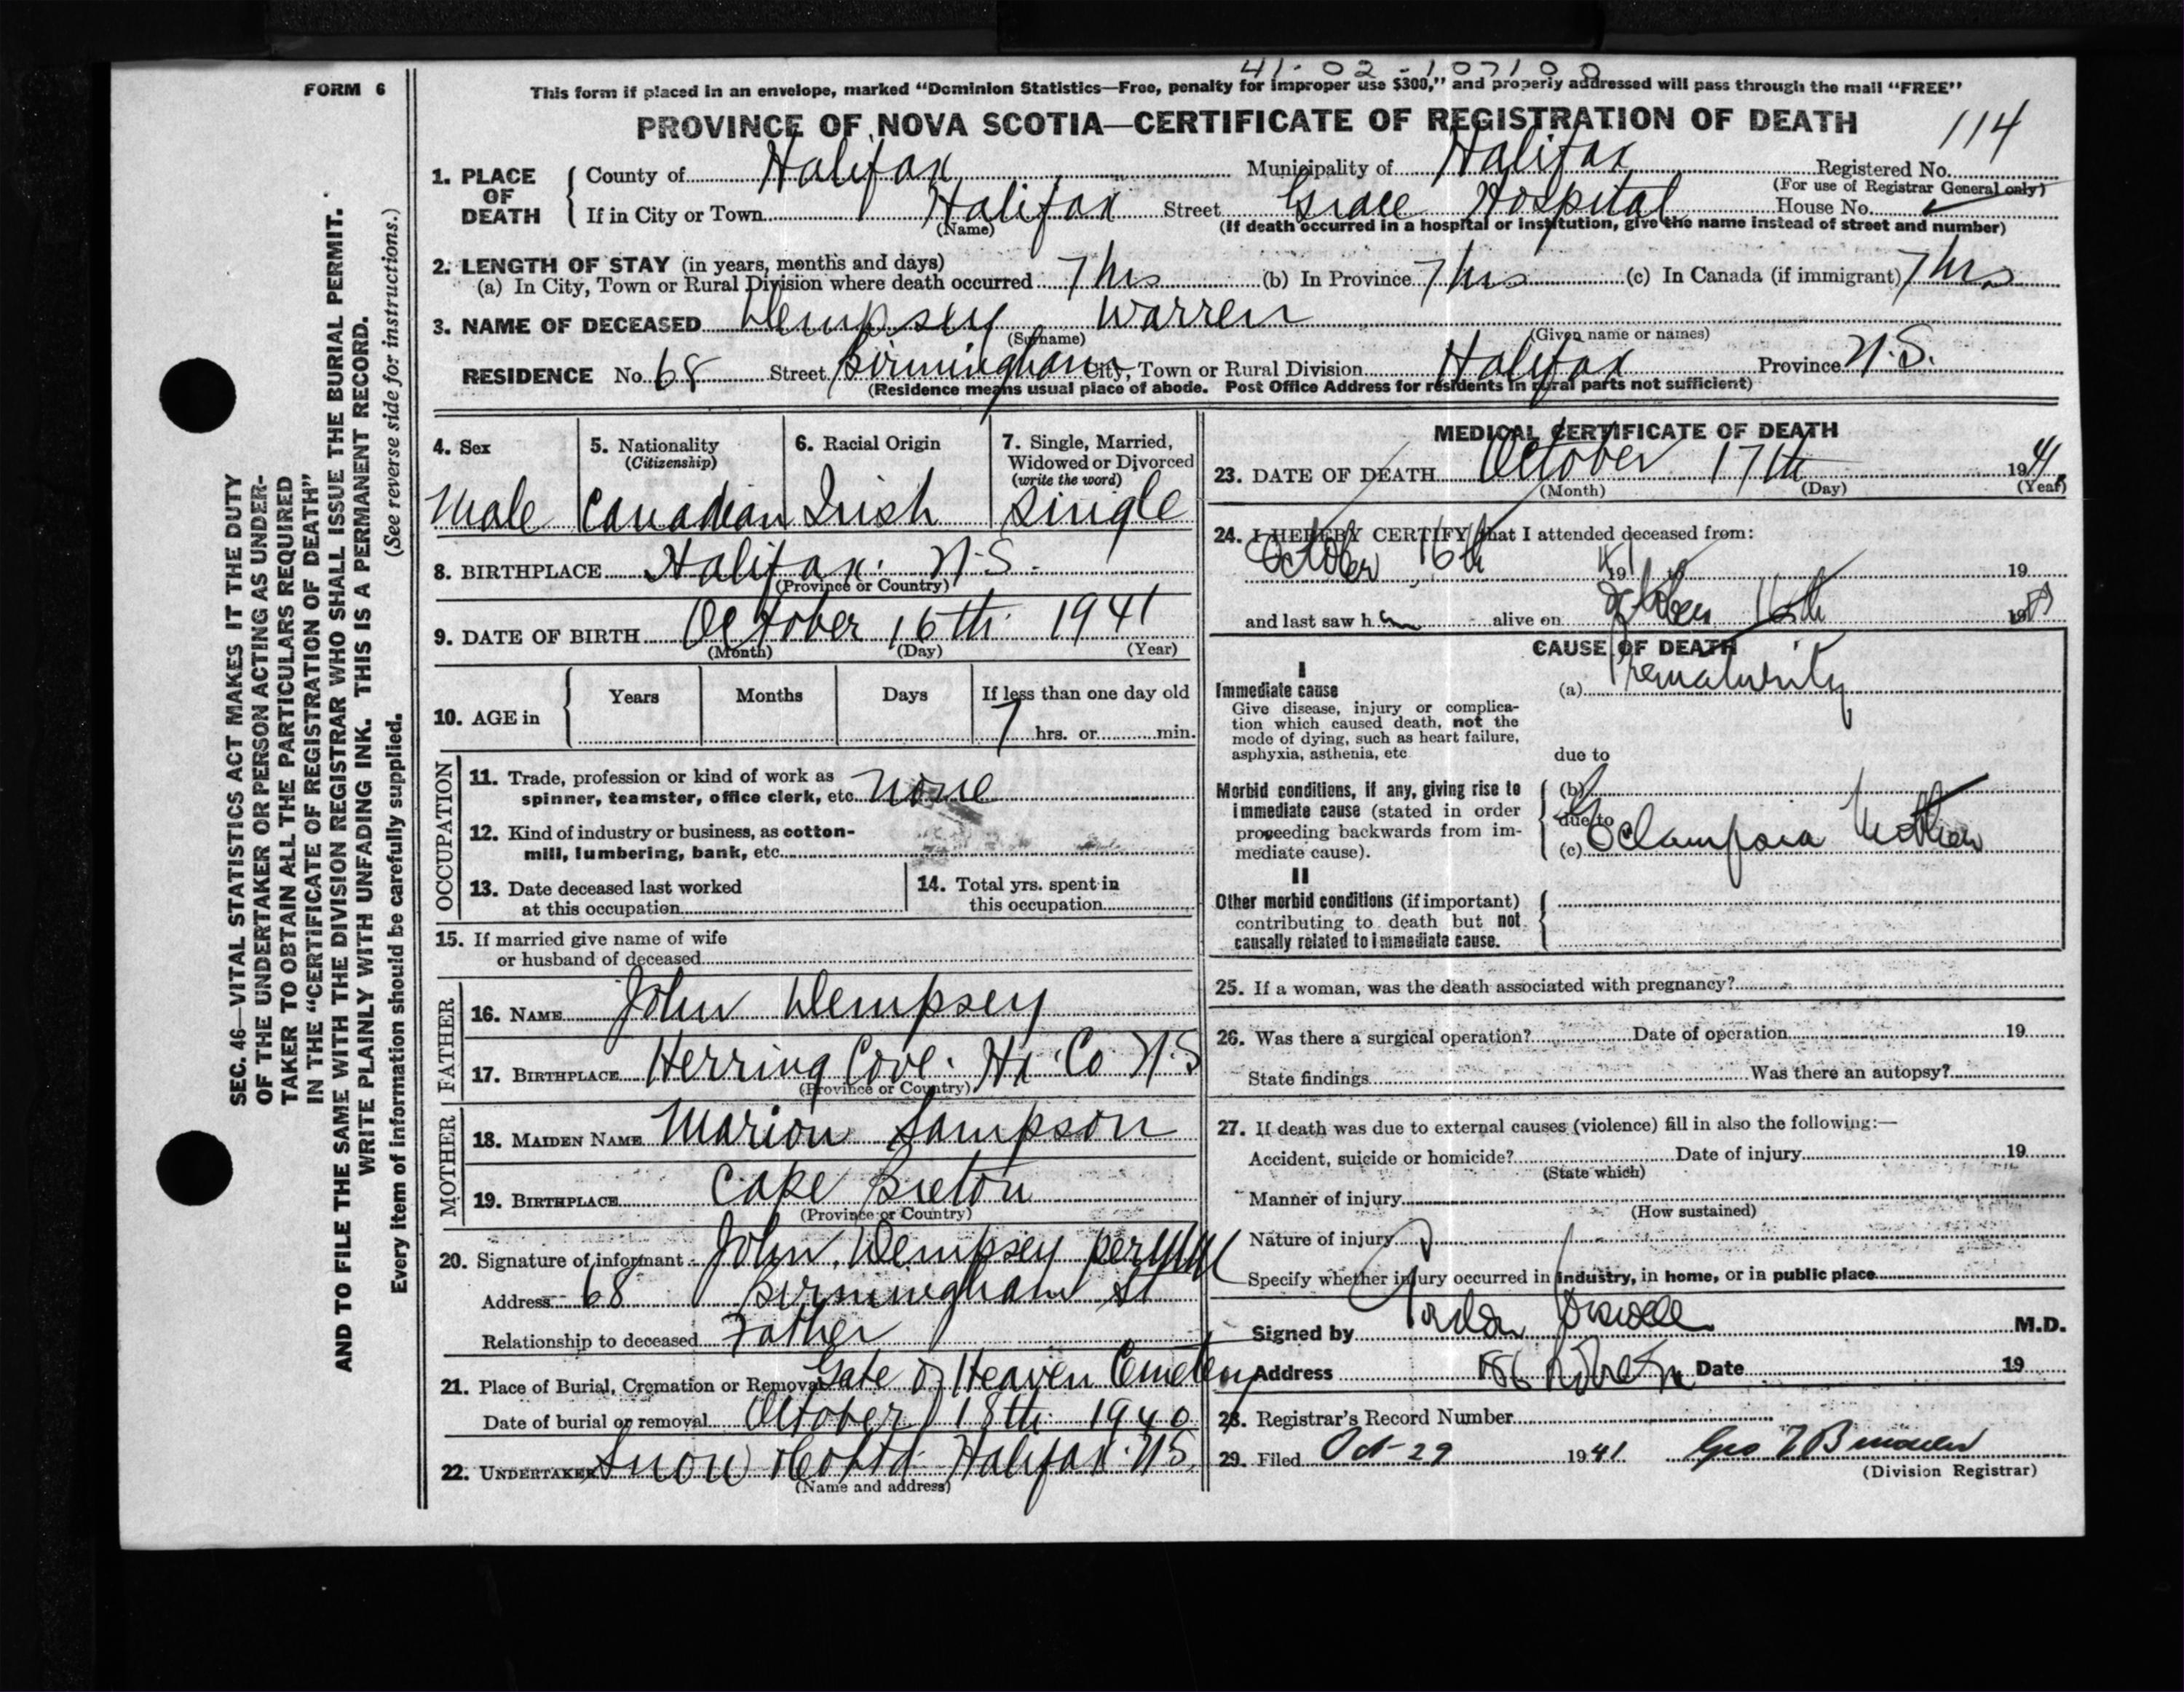 41-02-107100
FORM 6
This form if placed in an envelope, marked "Dominion Statistics—Free, penalty for improper use $300," and properly addressed will pass through the mail "FREE"
PROVINCE OF NOVA SCOTIA—CERTIFICATE OF REGISTRATION OF DEATH
114
1. PLACE OF DEATH
County of Halifax Municipality of Halifax Registered No.
(For use of Registrar General only)
If in City or Town Halifax Street Grace Hospital House No.
(Name) (If death occurred in a hospital or institution, give the name instead of street and number)
2. LENGTH OF STAY (in years, months and days)
(a) In City, Town or Rural Division where death occurred 7 hrs (b) In Province 7 hrs (c) In Canada (if immigrant) 7 hrs
3. NAME OF DECEASED Dempsey Warren
(Surname) (Given name or names)
RESIDENCE No. 68 Street Birmingham City, Town or Rural Division Halifax Province N.S.
(Residence means usual place of abode. Post Office Address for residents in rural parts not sufficient)
4. Sex
Male
5. Nationality
(Citizenship)
Canadian
6. Racial Origin
Irish
7. Single, Married,
Widowed or Divorced
(write the word)
Single
8. BIRTHPLACE Halifax. N.S.
(Province or Country)
9. DATE OF BIRTH October 16th 1941
(Month) (Day) (Year)
10. AGE in
Years Months Days If less than one day old
7 hrs. or min.
OCCUPATION
11. Trade, profession or kind of work as
spinner, teamster, office clerk, etc. None
12. Kind of industry or business, as cotton-
mill, lumbering, bank, etc.
13. Date deceased last worked
at this occupation
14. Total yrs. spent in
this occupation
15. If married give name of wife
or husband of deceased
FATHER
16. NAME John Dempsey
17. BIRTHPLACE Herring Cove. Hx. Co N.S
(Province or Country)
MOTHER
18. MAIDEN NAME Marion Sampson
19. BIRTHPLACE Cape Breton
(Province or Country)
20. Signature of informant John Dempsey per
Address 68 Birmingham St
Relationship to deceased Father
21. Place of Burial, Cremation or Removal Gate of Heaven Cemetery
Date of burial or removal October 18th 1940
22. UNDERTAKER Snow & Co Ltd. Halifax. N.S.
(Name and address)
MEDICAL CERTIFICATE OF DEATH
23. DATE OF DEATH October 17th 1941
(Month) (Day) (Year)
24. I HEREBY CERTIFY that I attended deceased from:
October 16th 1941 to 19
and last saw h alive on October 16th 19
CAUSE OF DEATH
I
Immediate cause
Give disease, injury or complica-
tion which caused death, not the
mode of dying, such as heart failure,
asphyxia, asthenia, etc
(a) Prematurity
due to
Morbid conditions, if any, giving rise to
immediate cause (stated in order
proceeding backwards from im-
mediate cause).
(b)
due to
(c) Eclampsia Mother
II
Other morbid conditions (if important)
contributing to death but not
causally related to immediate cause.
25. If a woman, was the death associated with pregnancy?
26. Was there a surgical operation? Date of operation 19
State findings Was there an autopsy?
27. If death was due to external causes (violence) fill in also the following:—
Accident, suicide or homicide? Date of injury 19
(State which)
Manner of injury
(How sustained)
Nature of injury
Specify whether injury occurred in industry, in home, or in public place
Signed by M.D.
Address Date 19
28. Registrar's Record Number
29. Filed Oct-29 1941 Geo
(Division Registrar)
SEC. 46—VITAL STATISTICS ACT MAKES IT THE DUTY
OF THE UNDERTAKER OR PERSON ACTING AS UNDER-
TAKER TO OBTAIN ALL THE PARTICULARS REQUIRED
IN THE "CERTIFICATE OF REGISTRATION OF DEATH"
AND TO FILE THE SAME WITH THE DIVISION REGISTRAR WHO SHALL ISSUE THE BURIAL PERMIT.
WRITE PLAINLY WITH UNFADING INK. THIS IS A PERMANENT RECORD.
Every item of information should be carefully supplied. (See reverse side for instructions.)